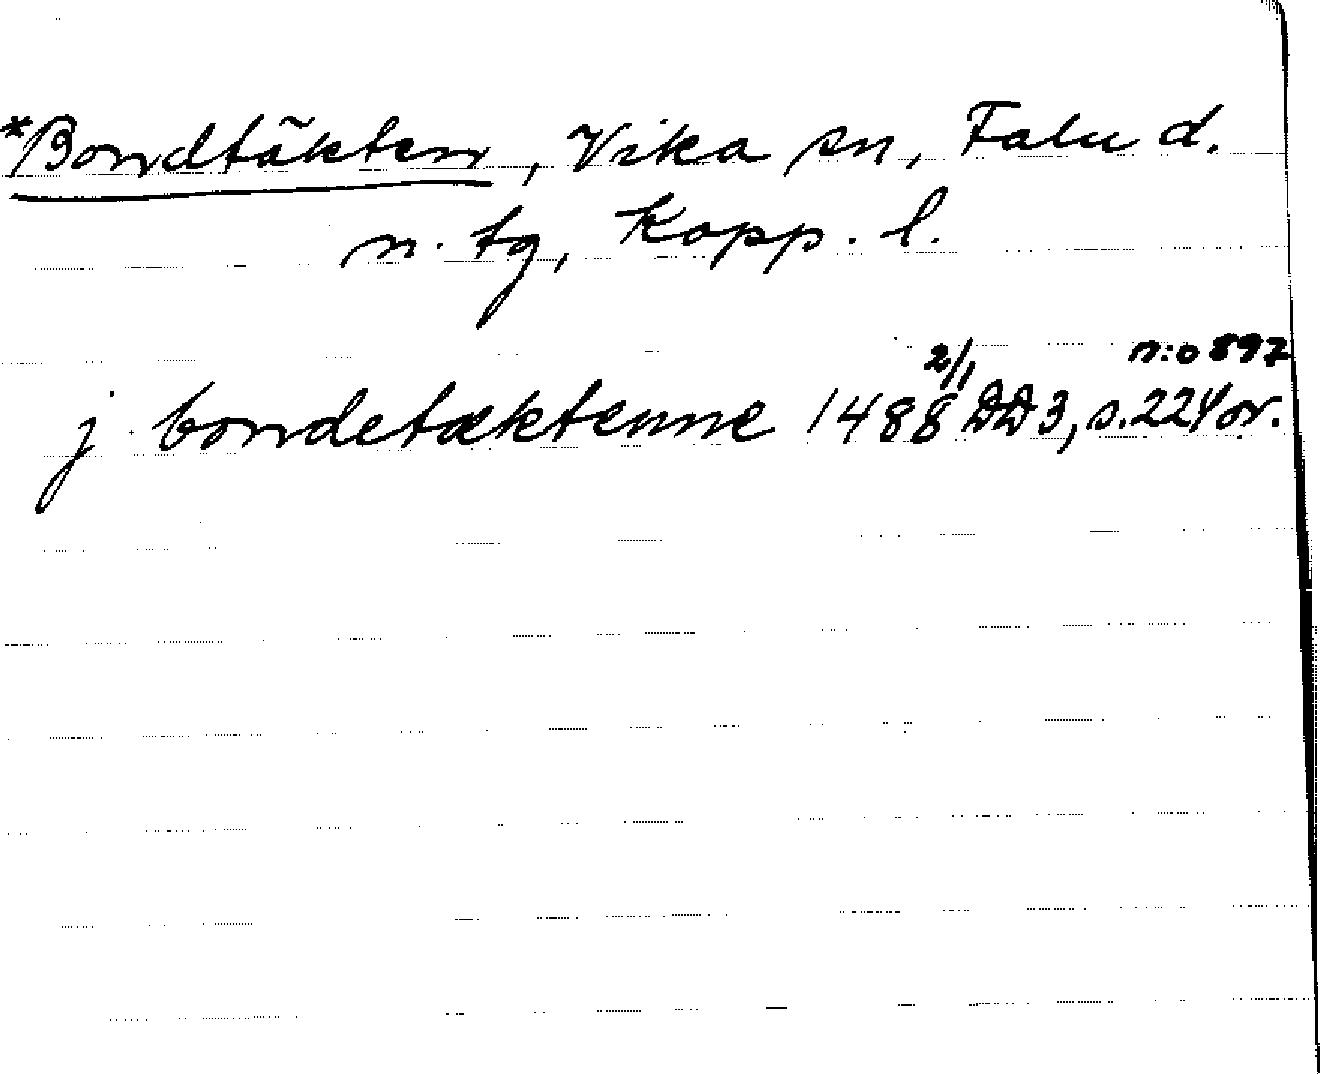 *Bondtäkten, Vika sn, Falu d.
n. tg, Kopp. l.
j bondetæktenne 1488 2/1 DD3, s.224 or. n:o 897